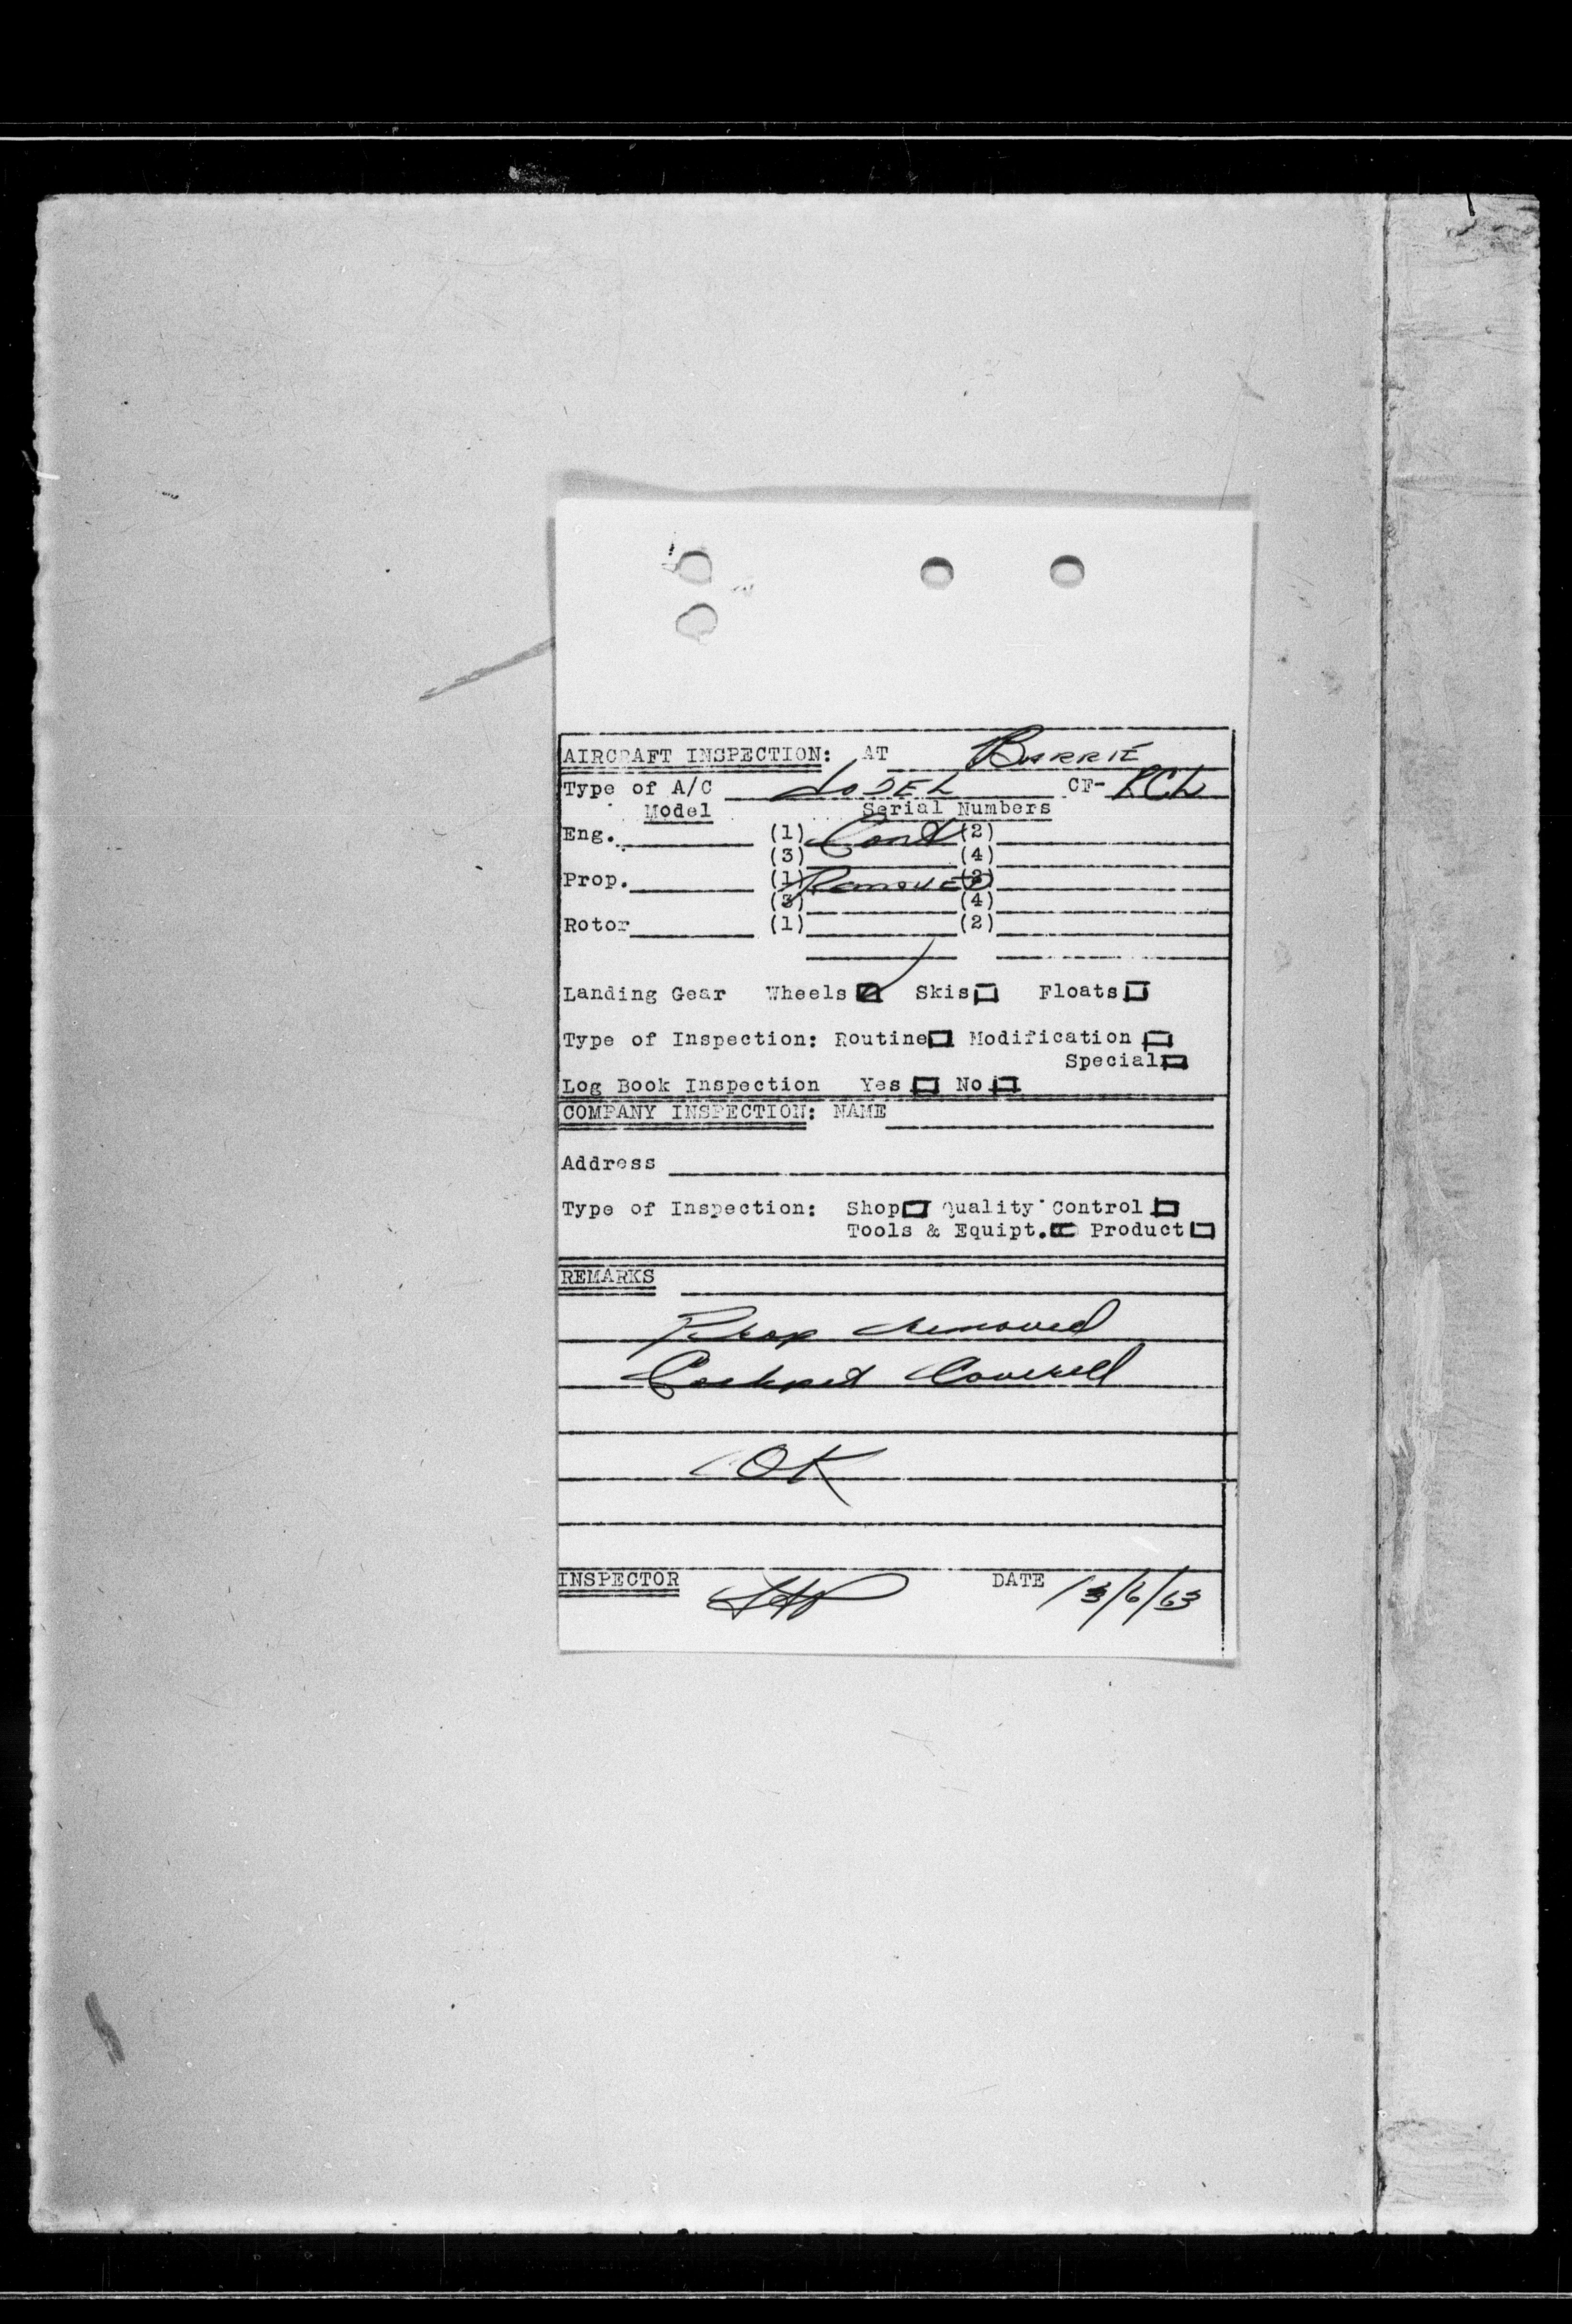 AIRCRAFT INSPECTION: AT BARRIE
Type of A/C JODEL CF- RCL
Model Serial Numbers
Eng. (1) Cont (2)
(3) (4)
Prop. (1) REMOVED (2)
(3) (4)
Rotor (1) (2)
Landing Gear Wheels Skis Floats
Type of Inspection: Routine Modification
Special
Log Book Inspection Yes No
COMPANY INSPECTION: NAME
Address
Type of Inspection: Shop Quality Control
Tools & Equipt. Product
REMARKS
Prop removed
Cockpit Covered
OK
INSPECTOR DATE 13/6/63